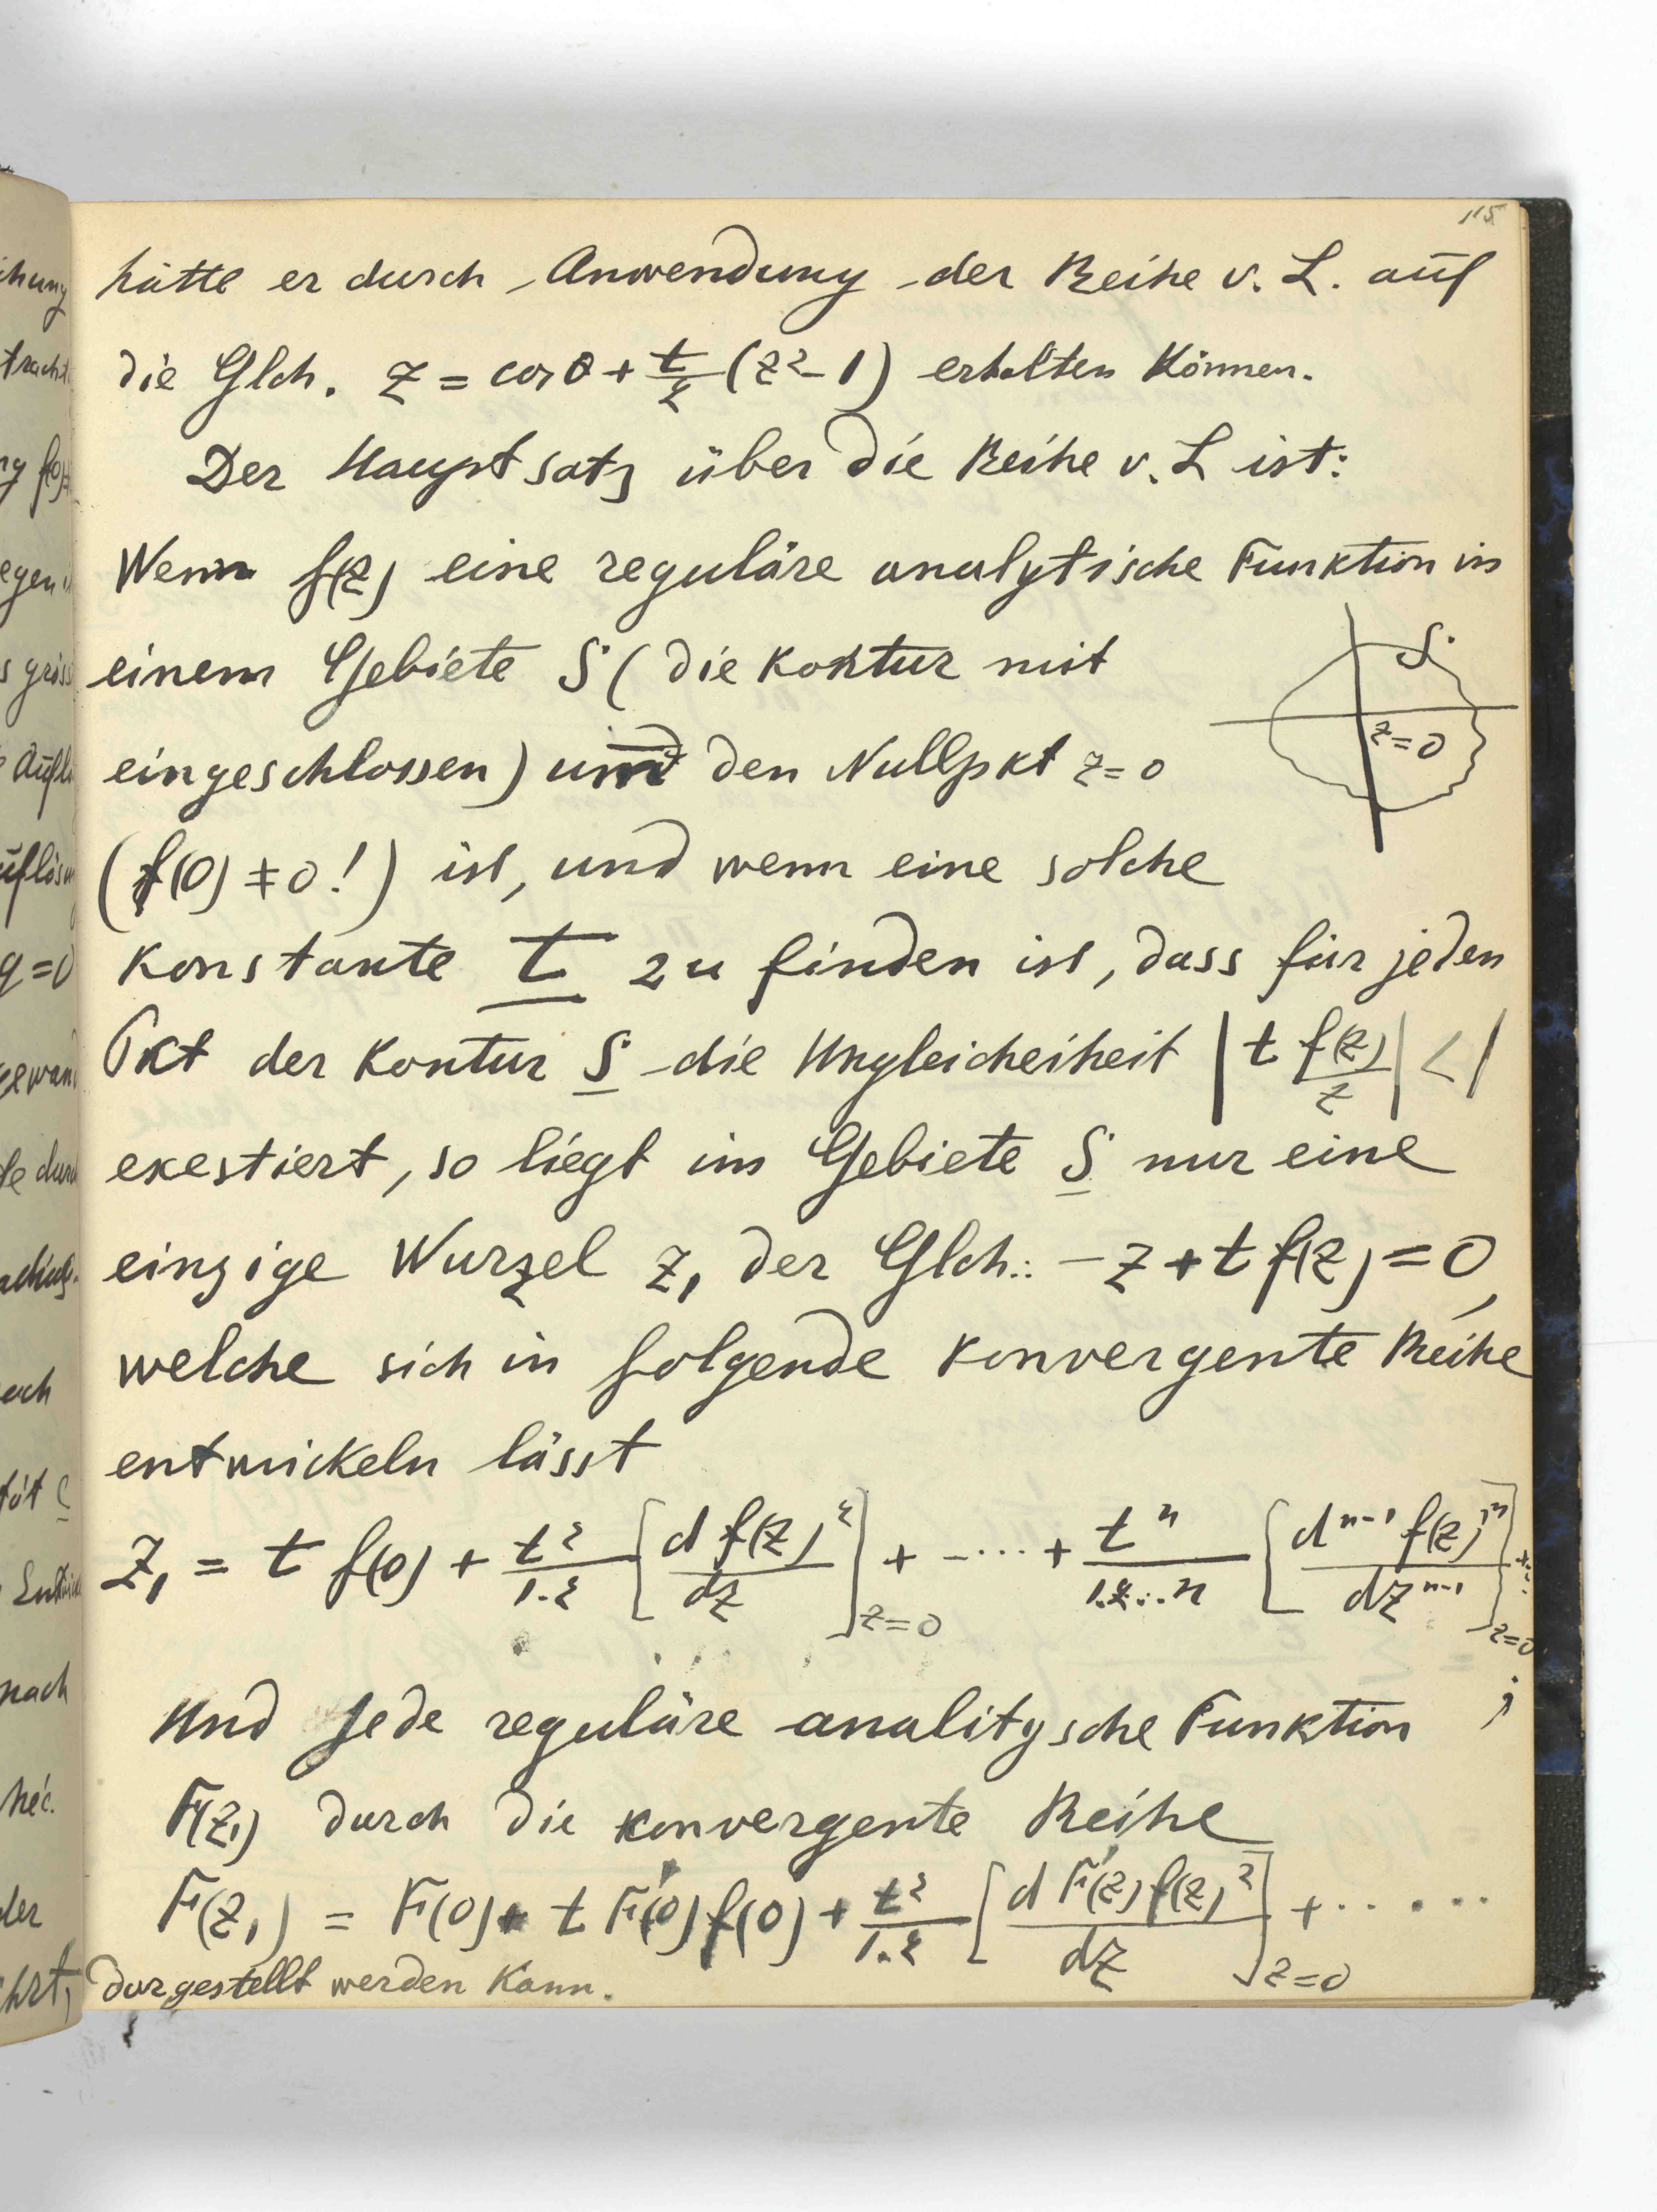 115
hätte er durch Anwendung der Reihe v. L. auf
die Glch. z = cos θ + t/2 (z² - 1) erhalten können.
Der Hauptsatz über die Reihe v. L ist:
Wenn f(z) eine reguläre analytische Funktion in
einem Gebiete S (die Kontur mit
S
eingeschlossen) um den Nullpkt z=0
z=0
(f(0) ≠ 0!) ist, und wenn eine solche
Konstante t zu finden ist, dass für jeden
Pkt der Kontur S die Ungleicheiheit |t f(z)/z| < 1
exestiert, so liegt im Gebiete S nur eine
einzige Wurzel z₁ der Glch.: -z + t f(z) = 0,
welche sich in folgende konvergente Reihe
entwickeln lässt
z₁ = t f(0) + t²/1.2 [d f(z)²/dz]z=0 + -···· + tⁿ/1.2...n [dⁿ⁻¹ f(z)ⁿ/dzⁿ⁻¹]z=0 + ..
;
Und jede reguläre analitysche Funktion
F(z₁) durch die konvergente Reihe
F(z₁) = F(0) + t F'(0) f(0) + t²/1.2 [d F'(z) f(z)²/dz]z=0 + ······
dargestellt werden kann.